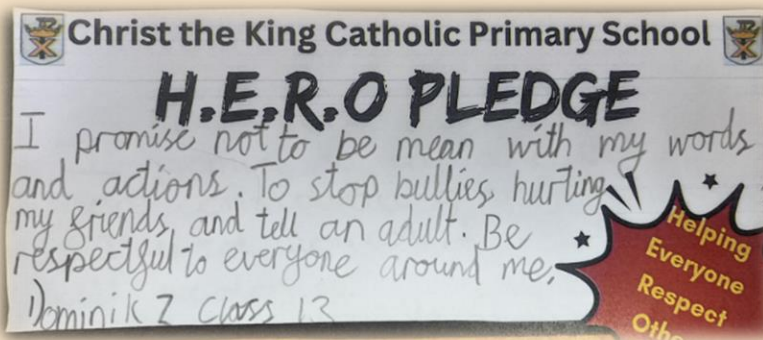 Christ the King Catholic Primary School
H.E.R.O PLEDGE
I promise not to be mean with my words
and actions. To stop bullies hurting
my friends and tell an adult. Be
respectful to everyone around me.
Dominik Z Class 13
Helping
Everyone
Respect